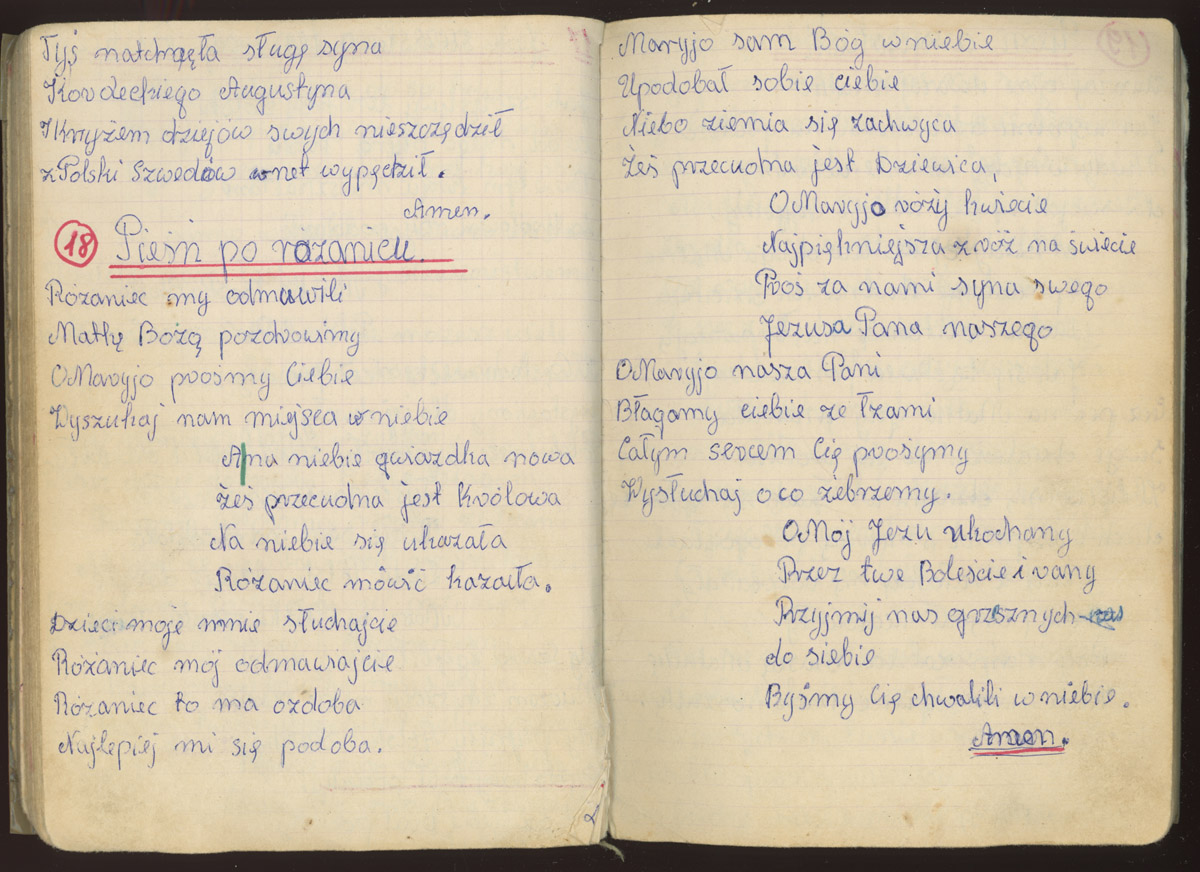 Tyś natchnęła sługę syna
Kordeckiego Augustyna
I Krzyżem dziejów swych nieszczędził
z Polski Szwedów wnet wypędził.
Amen.
18 Pieśń po różańcu.
Różaniec my odmawili
Matkę Bożą pozdrowimy
O Maryjo prośmy Ciebie
Wyszukaj nam miejsca w niebie
A na niebie gwiazdka nowa
Żeś przecudna jest Królowa
Na niebie się ukazała
Różaniec mówić kazała.
Dzieci moje mnie słuchajcie
Różaniec mój odmawiajcie
Różaniec to ma ozdoba
Najlepiej mi się podoba.
Maryjo sam Bóg w niebie
Upodobał sobie ciebie
Niebo ziemia się zachwyca
Żeś przecudna jest Dziewica,
O Maryjo róży kwiecie
Najpiękniejsza z róż na świecie
Proś za nami syna swego
Jezusa Pana naszego
O Maryjo nasza Pani
Błagamy ciebie ze łzami
Całym sercem Cię prosymy
Wysłuchaj o co żebrzemy.
O Mój Jezu ukochany
Przez twe Boleście i rany
Przyjmij nas grzesznych
do siebie
Byśmy Cię chwalili w niebie.
Amen.